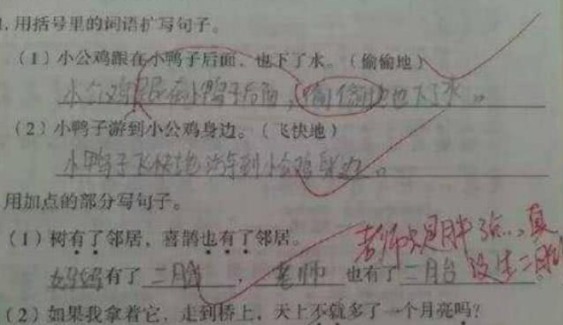 1.用括号里的词语扩写句子。
(1)小公鸡跟在小鸭子后面,也下了水。(偷偷地)
小公鸡跟在小鸭子后面,偷偷地也下了水。
(2)小鸭子游到小公鸡身边。(飞快地)
小鸭子飞快地游到小公鸡身边。
用加点的部分写句子。
(1)树有了邻居,喜鹊也有了邻居。
妈妈有了二胎,老师也有了二台
老师只是胖了点..,真没生二胎
(2)如果我拿着它,走到桥上,天上不就多了一个月亮吗?